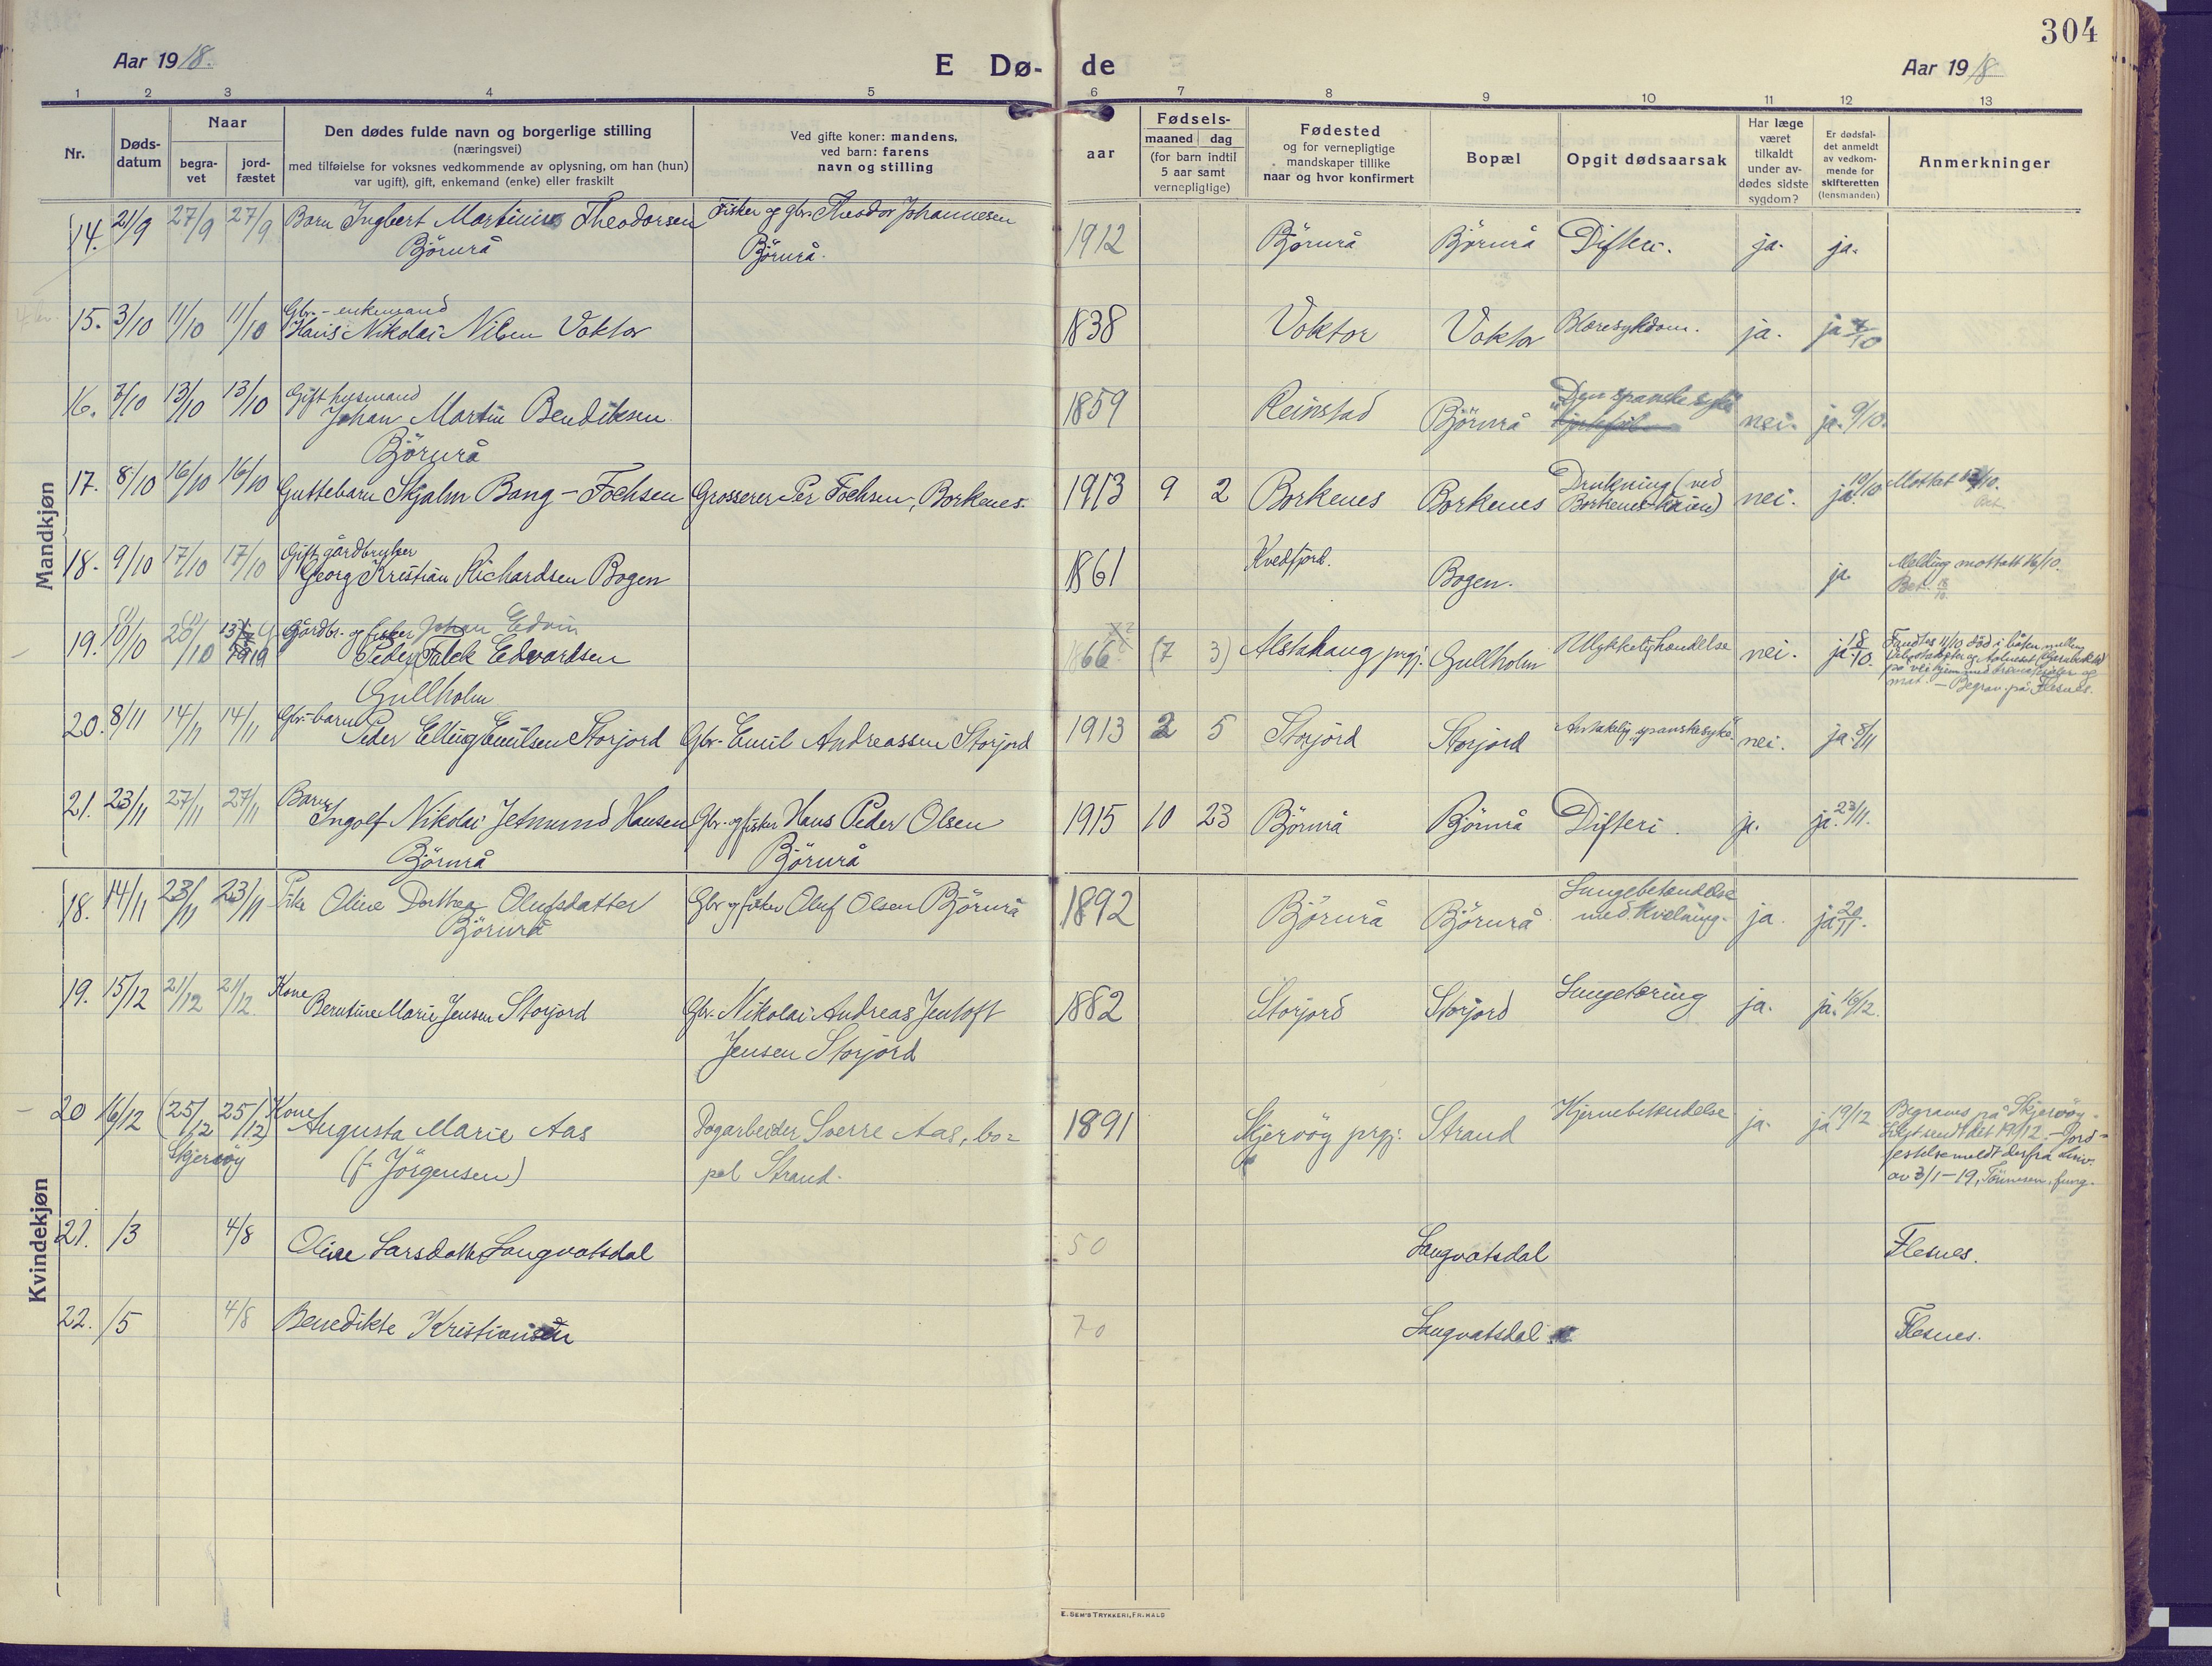 304
Aar 1918. E Dø- de Aar 1918
1 2 3 4 5 6 7 8 9 10 11 12 13
Nr.
Døds-
datum
Naar
begra-
vet
jord-
fæstet
Den dødes fulde navn og borgerlige stilling
(næringsvei)
med tilføielse for voksnes vedkommende av oplysning, om han (hun)
var ugift), gift, enkemand (enke) eller fraskilt
Ved gifte koner: mandens,
ved barn: farens
navn og stilling
aar
Fødsels-
maaned dag
(for barn indtil
5 aar samt
vernepligtige)
Fødested
og for vernepligtige
mandskaper tillike
naar og hvor konfirmert
Bopæl
Opgit dødsaarsak
Har læge
været
tilkaldt
under av-
dødes sidste
sygdom?
Er dødsfal-
det anmeldt
av vedkom-
mende for
skifteretten
(lensmanden)
Anmerkninger
Mandkjøn
14. 21/9 27/9 27/9 Barn Ingbert Martinius Theodorsen Fisker og gbr. Theodor Johannesen 1912 Björnrå Björnrå Difteri. ja. ja.
Björnrå Björnrå.
15. 3/10 11/10 11/10 Gbr. - enkemand
Hans Nikolai Nilsen Voktor 1838 Voktor Voktor Blæresykdom. ja. ja 7/10
16. 7/10 13/10 13/10 Gift husmand
Johan Martin Bendiksen 1859 Reinstad Björnrå "Den spanske syke" nei. ja. 9/10.
Björnrå
17. 8/10 16/10 16/10 Guttebarn Skjalm Bang-Fochsen Grosserer Per Fochsen, Borkenes. 1913 9 2 Borkenes Borkenes Drukning (ved
Borkenes-kaien) nei. ja. 10/10 Mottat /10.
18. 9/10 17/10 17/10 Gift gårdbruker
Georg Kristian Richardsen Bogen 1861 Kvedfjord. Bogen. ja. Melding mottatt 16/10.
19. 10/10 20/10 1919 Gårdbr. og fisker Johan Edvin
Peder Falck Edvardsen 66 (7 3) Alstahaug prgj. Gullholm Ulykkelig hændelse nei. ja 18/10. Fundtes 11/10 død i båten mellem
Gullholm på vei hjem med
mat. - Begrav. på Flesnes.
20. 8/11 14/11 14/11 Gbr.-barn
Peder Elling Emilsen Storjord Gbr. Emil Andreassen Storjord 1913 2 5 Storjord Storjord Antakelig spanskesyke nei. ja. 8/11
21. 23/11 27/11 27/11 Barn
Ingolf Nikolai Jetmund Hansen Gbr. og fisker Hans Peder Olsen 1915 10 23 Björnrå Björnrå Difteri. ja. ja. 23/11.
Björnrå Björnrå
Kvindekjøn
18. 14/11 23/11 23/11 Pike Oline Dorthea Olufsdatter Gbr og fisker Oluf Olsen Björnrå 1892 Björnrå Björnrå Lungebetændelse
med kvelning. ja. ja 20/11.
Björnrå
19. 15/12 21/12 21/12. Kone
Berntine Marie Jensen Storjord Gbr. Nikolai Andreas Jentoft 1882 Storjord Storjord Lungetæring ja. ja. 16/12.
Jensen Storjord
20 16/12 (25/12 25/12) Kone
Skjervöy
Augusta Marie Aas Dagarbeider Sverre Aas, bo- 1891 Skjervöy prgj. Strand Hjernebetændelse ja. ja 19/12 Begraves på Skjervöy.
(f. Jörgensen) pæl Strand. Liget sendt det 19/12. - Jord-
festelse meldt derfra skriv.
av 3/1-19, Tönnesen, fung.
21. /3 4/8 Oline Larsdatt. Langvatsdal 50 Langvatsdal Flesnes.
22. /5 4/8 Benedikte Kristiansen 70 Langvatsdal Flesnes.
E. SEM'S TRYKKERI, FR. HALD